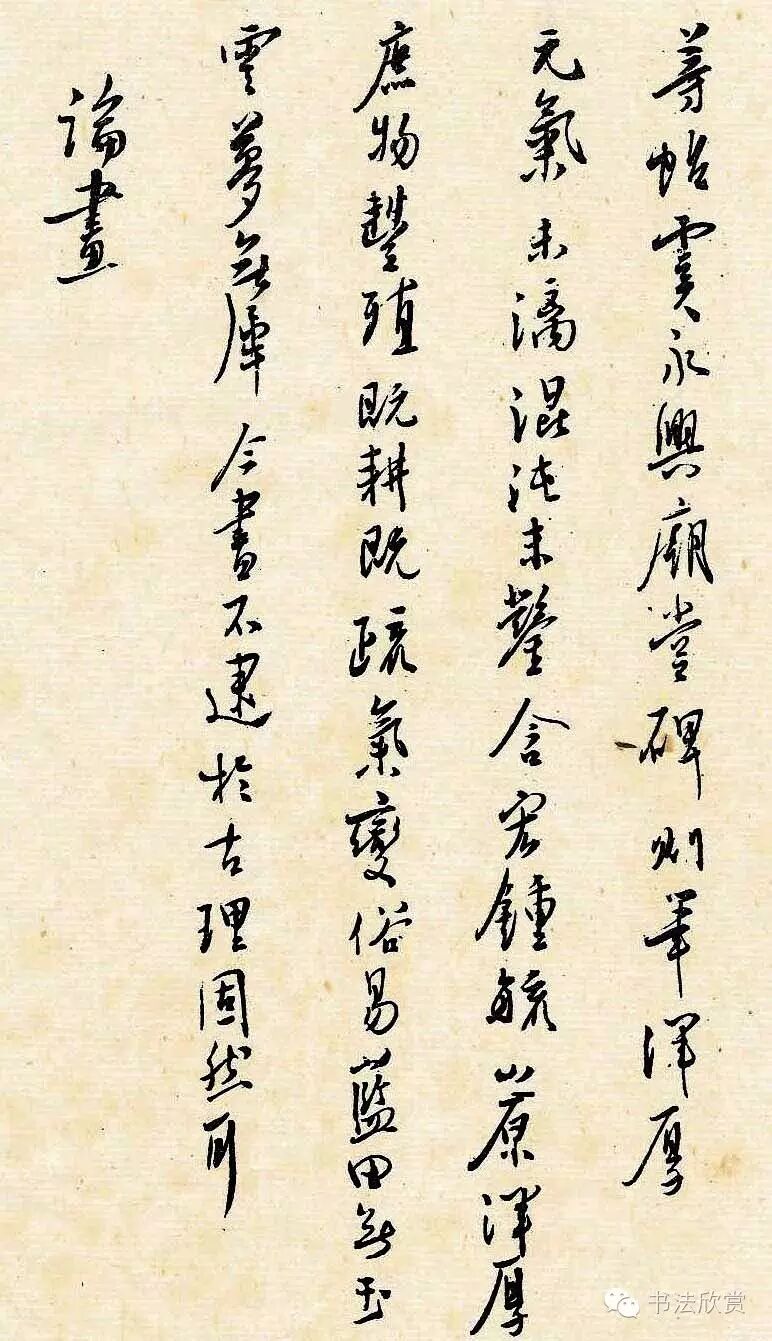 等帖虞永興廟堂碑則筆渾厚
元氣未漓混沌未鑿含宏鍾毓山原渾厚
庶物豐殖既耕既疏氣變俗易藍田無玉
雲夢無犀今書不逮於古理固然耳
論畫
书法欣赏